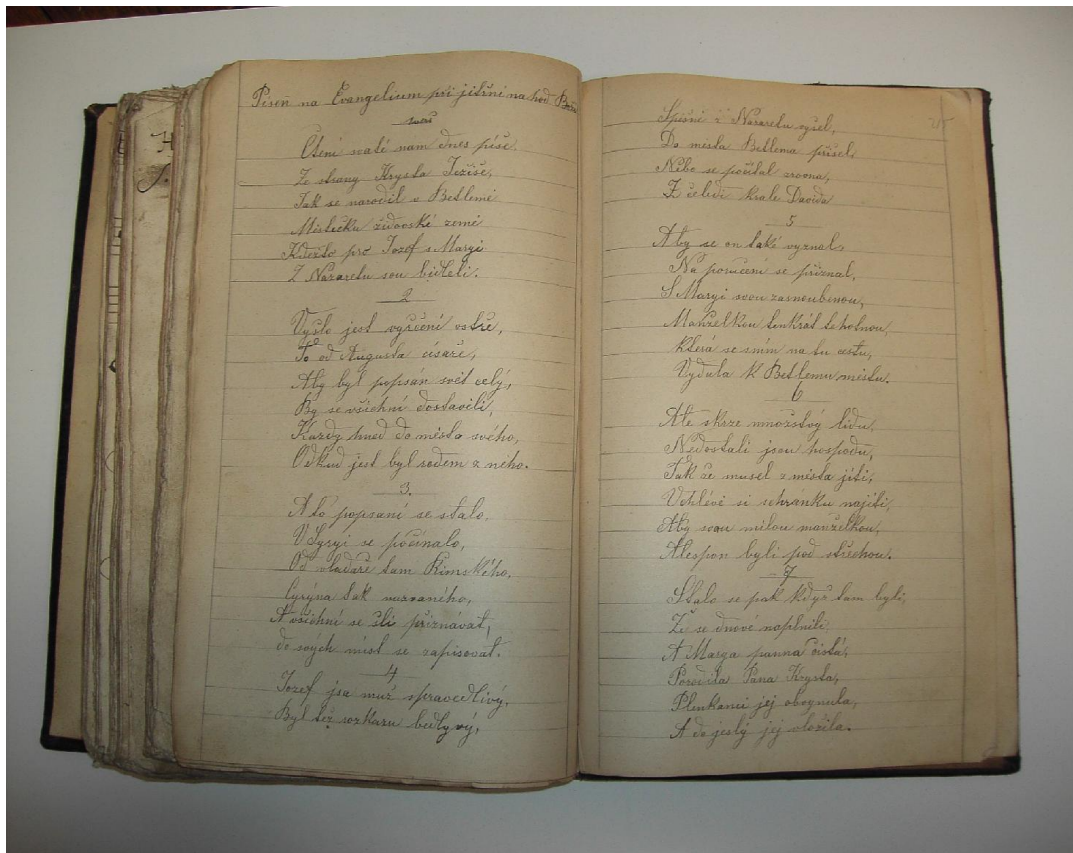 Piseň na Evangelium při jitřni na hod Boži
Čteni svaté nam dnes piše.
Ze strany Krysta Ježiše,
Jak se narodil v Betlemě
Městečku židovské země
Kdežto pro Jozef s Maryi
Z Nazaretu sou bidleli.
2
Vyšlo jest vyřčení ostře,
To od Augusta cisaře,
Aby byl popsán svět celý,
By se všichni dostavili,
Každy hned do města svého,
Odkud jest byl rodem z něho.
3.
A to popsani se stalo,
V Syryi se počinalo,
Od vladaře tam Rimského,
Cyryna tak nazvaného,
A všichni se šli přiznávat,
do svých mist se zapisovat.
4
Jozef jsa muž spravedlivý,
Byl též rozkazu bedlyvý,
Spišně z Nazaretu vyšel,
Do mesta Betlema přišel,
Nebo se počital zrovna,
Z čeledi krale Davida
5
Aby se on také vyznal,
Na poručeni se přiznal,
S Maryi svou zasnoubenou,
Manželkou tenkrát tehotnou,
Která se snim na tu cestu,
Vydala k Betlemu městu.
6
Ale skrze množstvý lidu,
Nedostali jsou hospodu,
Tak že musel z města jiti,
Vchlévě si schránku najiti,
Aby svou milou manželkou,
Alespon byli pod střechou.
7
Stalo se pak když tam byli,
Že se dnove naplnili
A Marya panna čistá,
Porodila Pana Krysta,
Plenkami jej obvynula,
A do jeslý jej vložila.
215